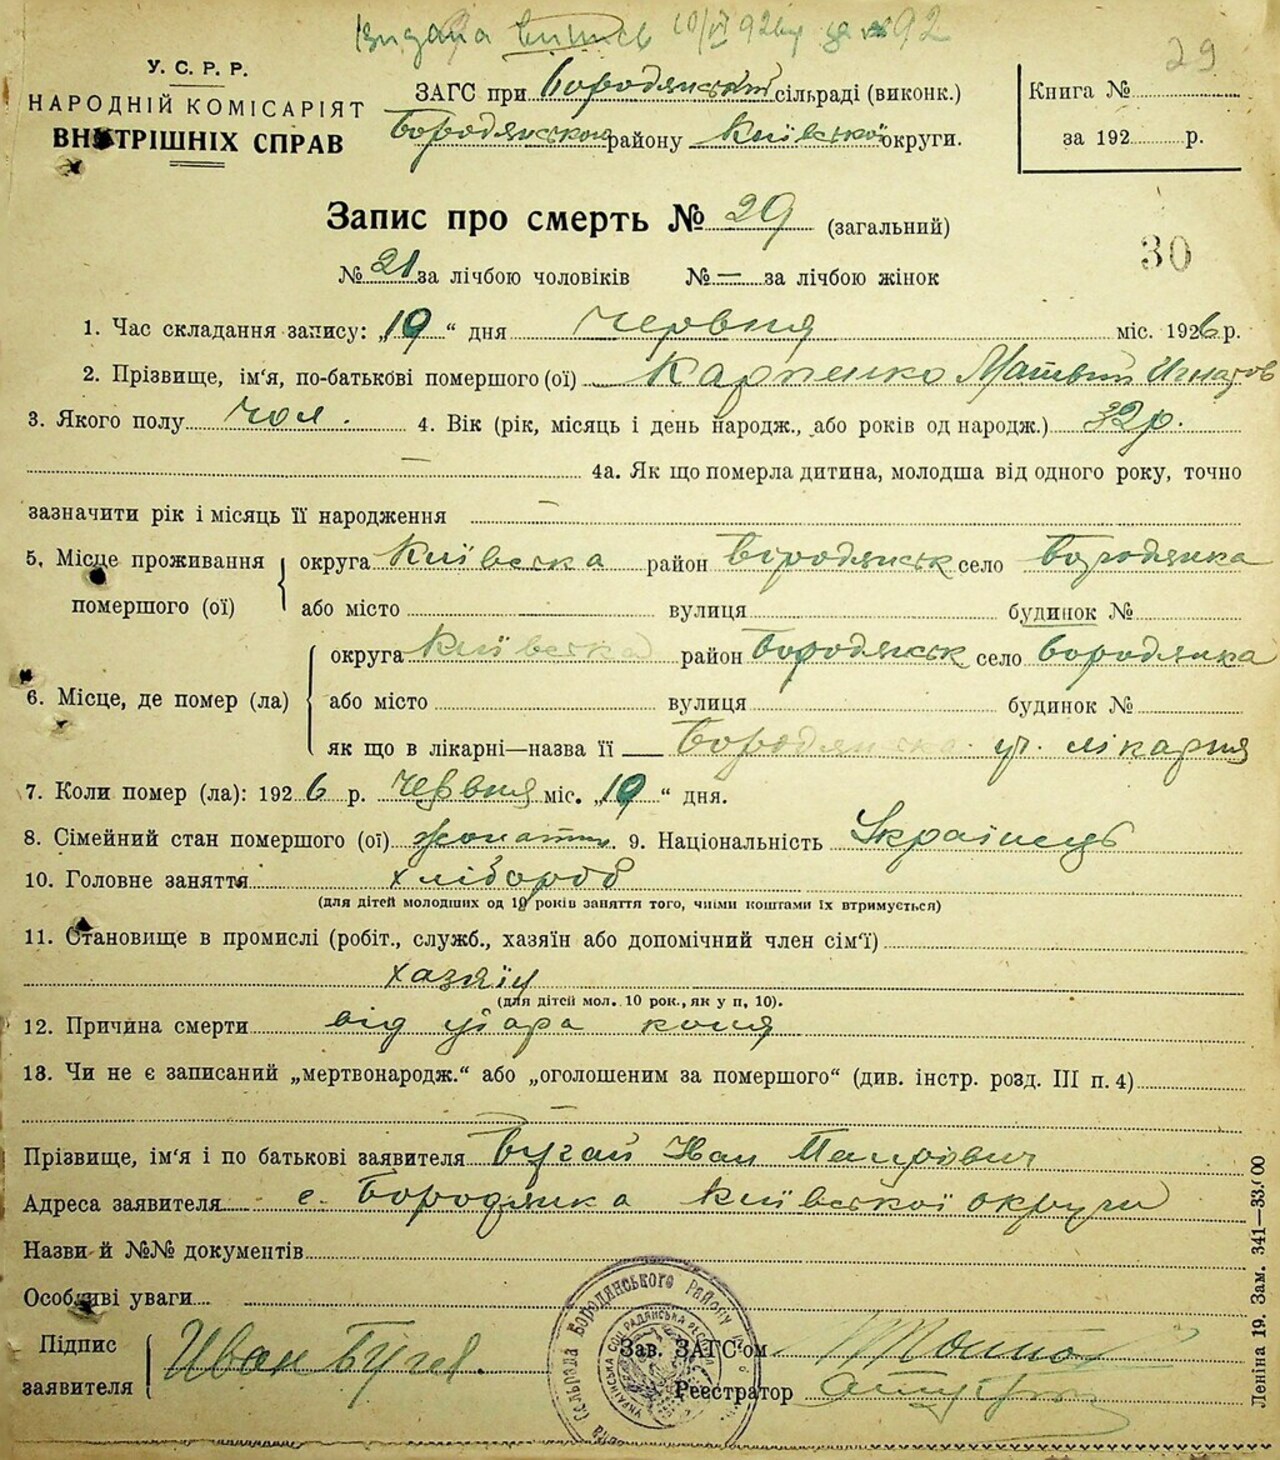 Видана випись 10/VI 926 р за № 92
29
У. С. Р. Р.
НАРОДНІЙ КОМІСАРІЯТ
ВНУТРІШНІХ СПРАВ
ЗАГС при Бородянській сільраді (виконк.)
Бородянського району Київської округи.
Книга №
за 192 р.
Запис про смерть № 29 (загальний)
30
№ 21 за лічбою чоловіків № — за лічбою жінок
1. Час складання запису: „19“ дня червня міс. 1926 р.
2. Прізвище, ім‘я, по-батькові помершого (ої) Карпенко Матвій Игнатов
3. Якого полу чол. 4. Вік (рік, місяць і день народж., або років од народж.) 32 р.
— 4а. Як що померла дитина, молодша від одного року, точно
зазначити рік і місяць її народження —
5. Місце проживання помершого (ої)
округа Київська район Бородянськ село Бородянка
або місто вулиця будинок №
6. Місце, де помер (ла)
округа Київська район Бородянськ село Бородянка
або місто вулиця будинок №
як що в лікарні—назва її Бородянська лікарня
7. Коли помер (ла): 1926 р. Червня міс. „19“ дня.
8. Сімейний стан помершого (ої) жонатий 9. Національність Українець
10. Головне заняття хлібороб
(для дітей молодших од 10 років заняття того, чиїми коштами їх втримується)
11. Становище в промислі (робіт., служб., хазяїн або допомічний член сім‘ї)
хазяїн
(для дітей мол. 10 рок., як у п, 10).
12. Причина смерти від удара коня
13. Чи не є записаний „мертвонародж.“ або „оголошеним за помершого“ (див. інстр. розд. III п. 4)
—
Прізвище, ім‘я і по батькові заявителя Бугай Иван Маирович
Адреса заявителя с. Бородянка Київської округи
Назви й №№ документів
Особливі уваги
Підпис заявителя Иван Бугай.
Зав. ЗАГС‘ом
Реєстратор
Сільрада Бородянського району
УКРАЇНСЬКА СОЦ. РАДЯНСЬКА РЕСП
Леніна 19. Зам. 341—33.000